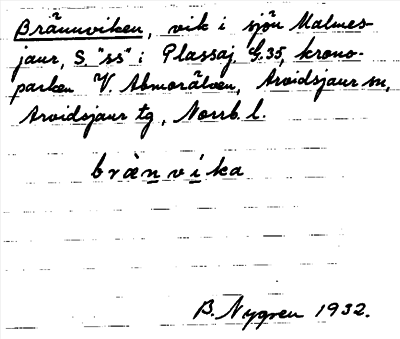 Brännviken, vik i sjön Malmes-
jaur, S. "ss" i Plassaj G.35, krono-
parken V. Abmorälven, Arvidsjaur sn,
Arvidsjaur tg, Norrb. l.
bränvika
B. Nygren 1932.